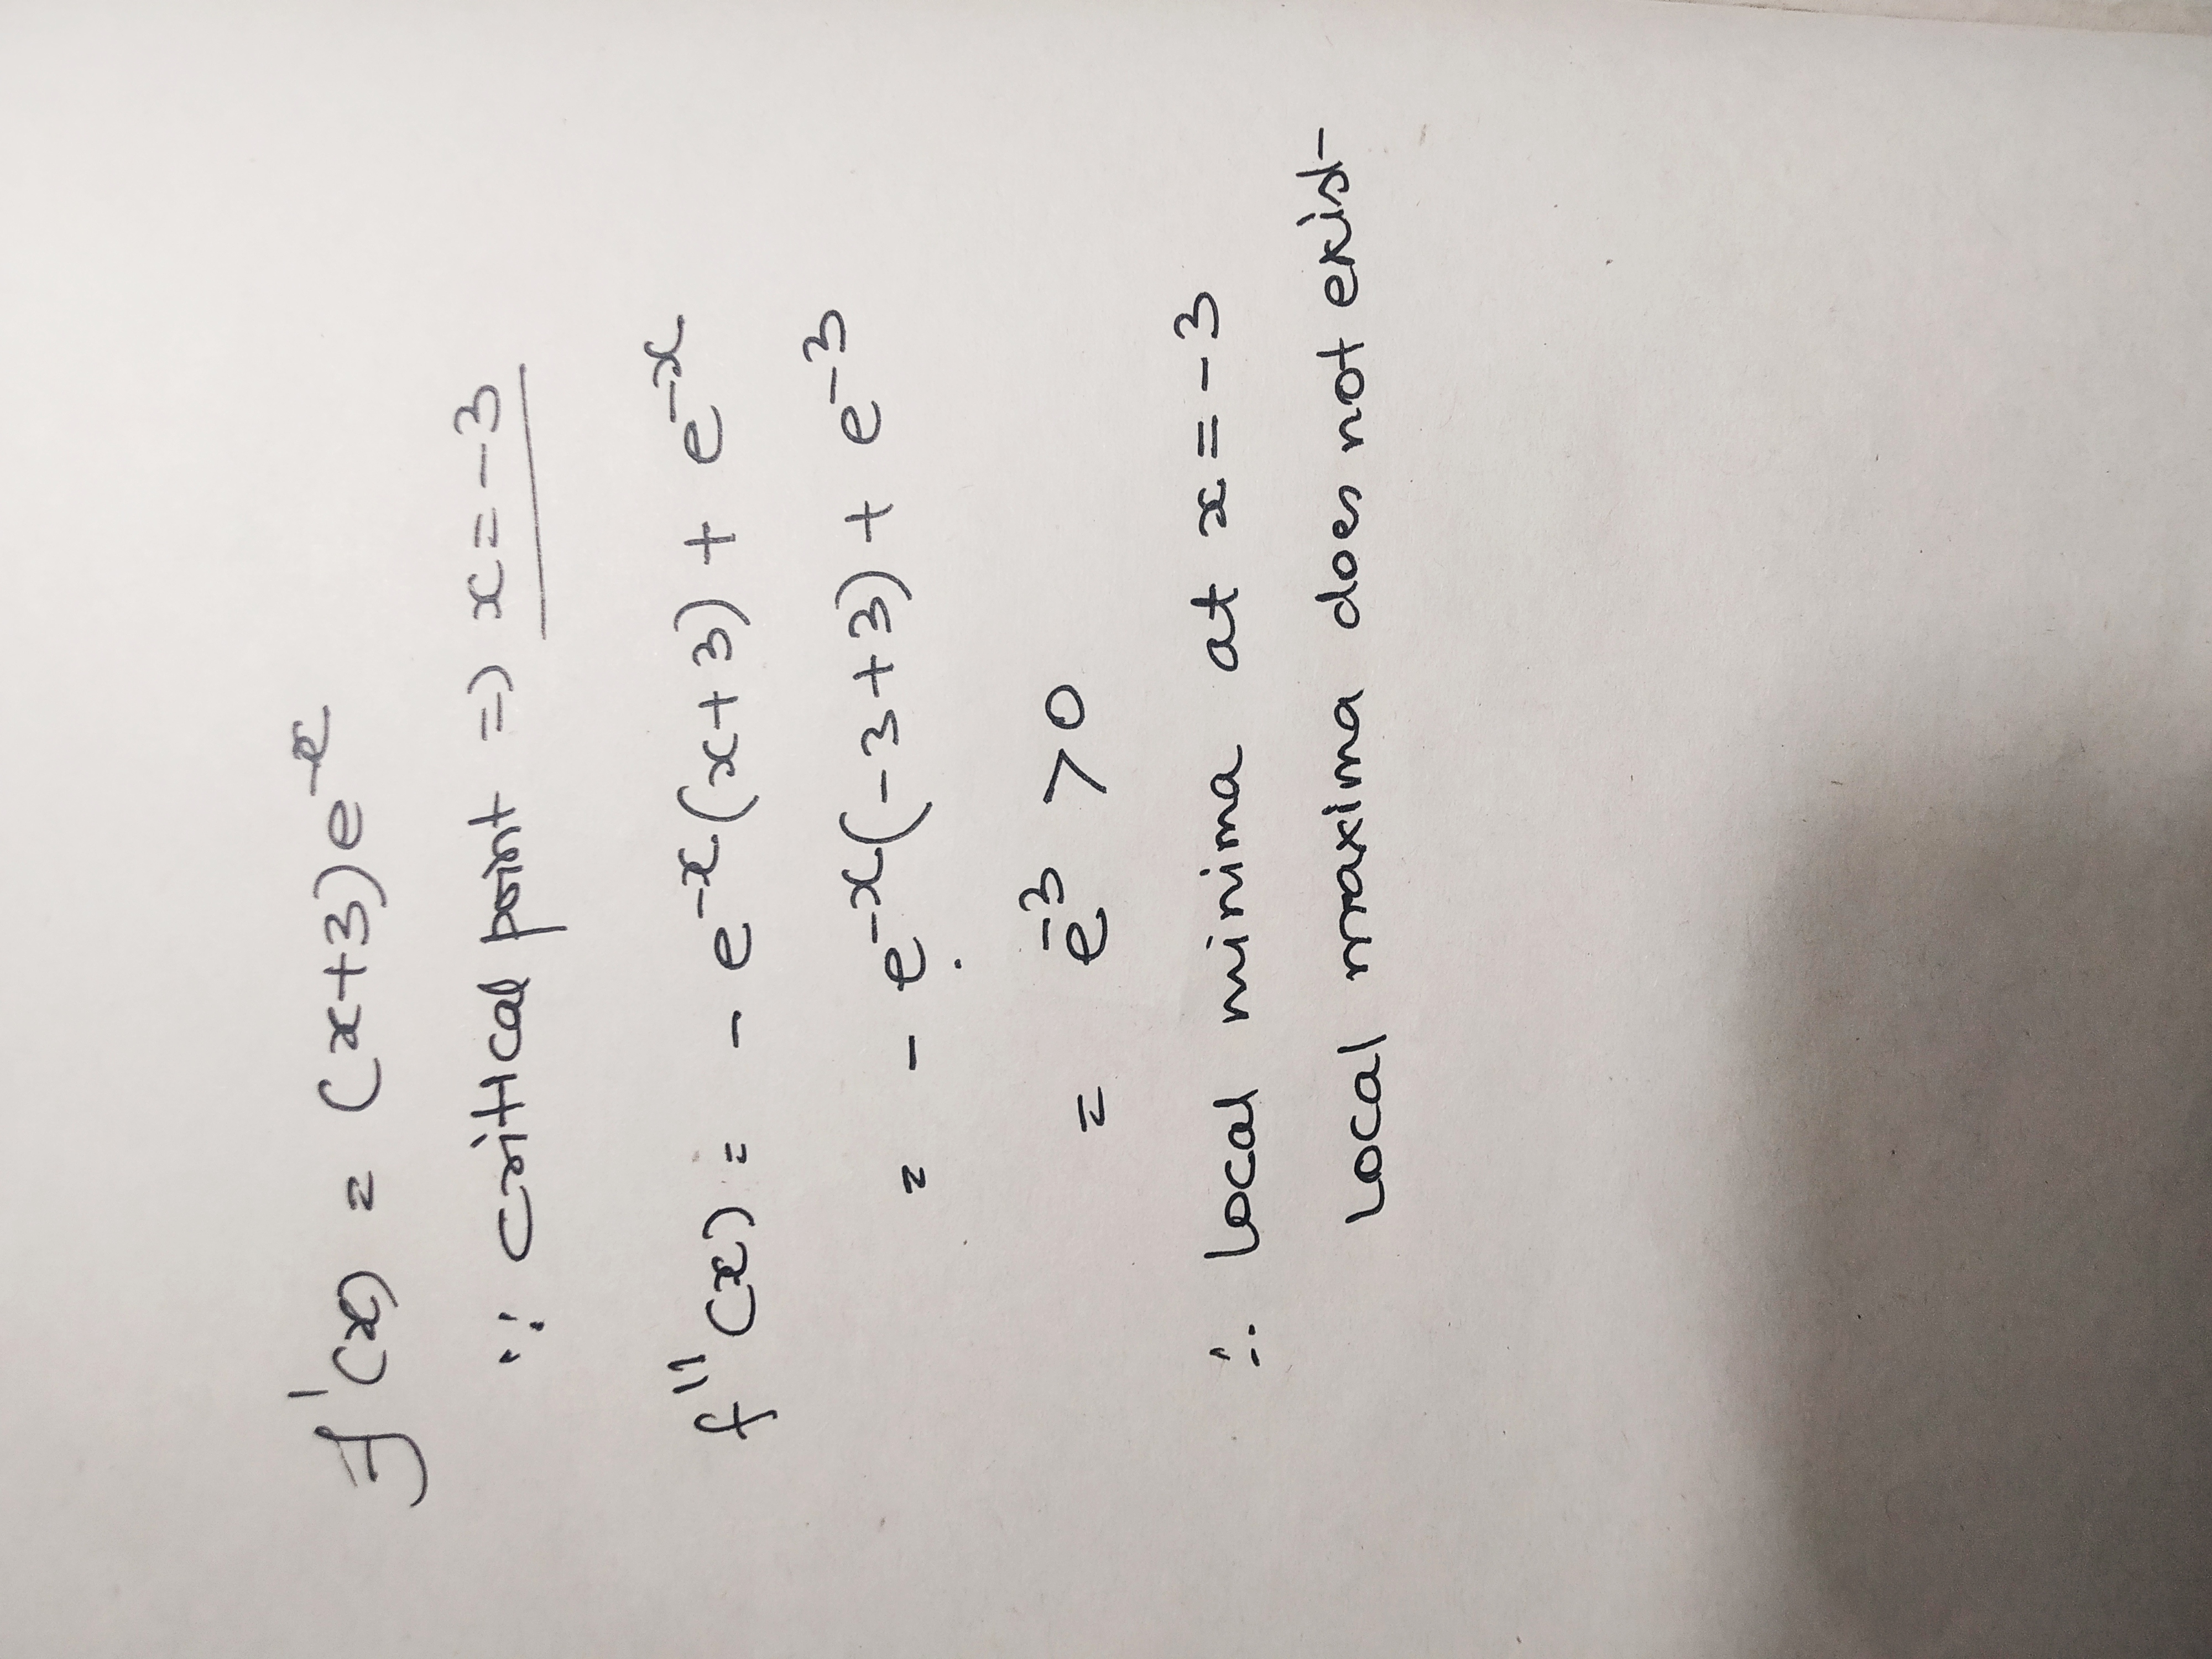 f'(x) = (x+3)e^-x
∵ critical point ⇒ x = -3
f''(x) = - e^-x (x+3) + e^-x
= - e^-x (-3+3) + e^-3
= e^-3 > 0
∴ local minima at x = -3
Local maxima does not exist